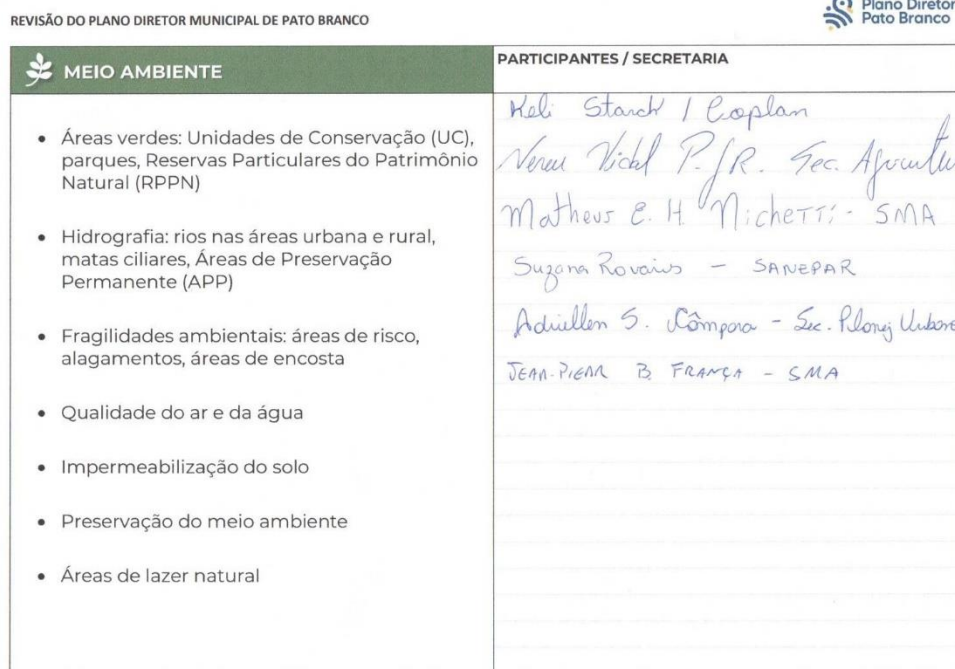 REVISÃO DO PLANO DIRETOR MUNICIPAL DE PATO BRANCO
Plano Diretor
Pato Branco
MEIO AMBIENTE
PARTICIPANTES / SECRETARIA
• Áreas verdes: Unidades de Conservação (UC),
parques, Reservas Particulares do Patrimônio
Natural (RPPN)
• Hidrografia: rios nas áreas urbana e rural,
matas ciliares, Áreas de Preservação
Permanente (APP)
• Fragilidades ambientais: áreas de risco,
alagamentos, áreas de encosta
• Qualidade do ar e da água
• Impermeabilização do solo
• Preservação do meio ambiente
• Áreas de lazer natural
Keli Starck / Coplan
Vidal P. Sec.
Matheus E. H. Michetti - SMA
Suzana - SANEPAR
Adriellen S. Câmpara - Sec. Planej
JEAN-PIERR B. FRANÇA - SMA